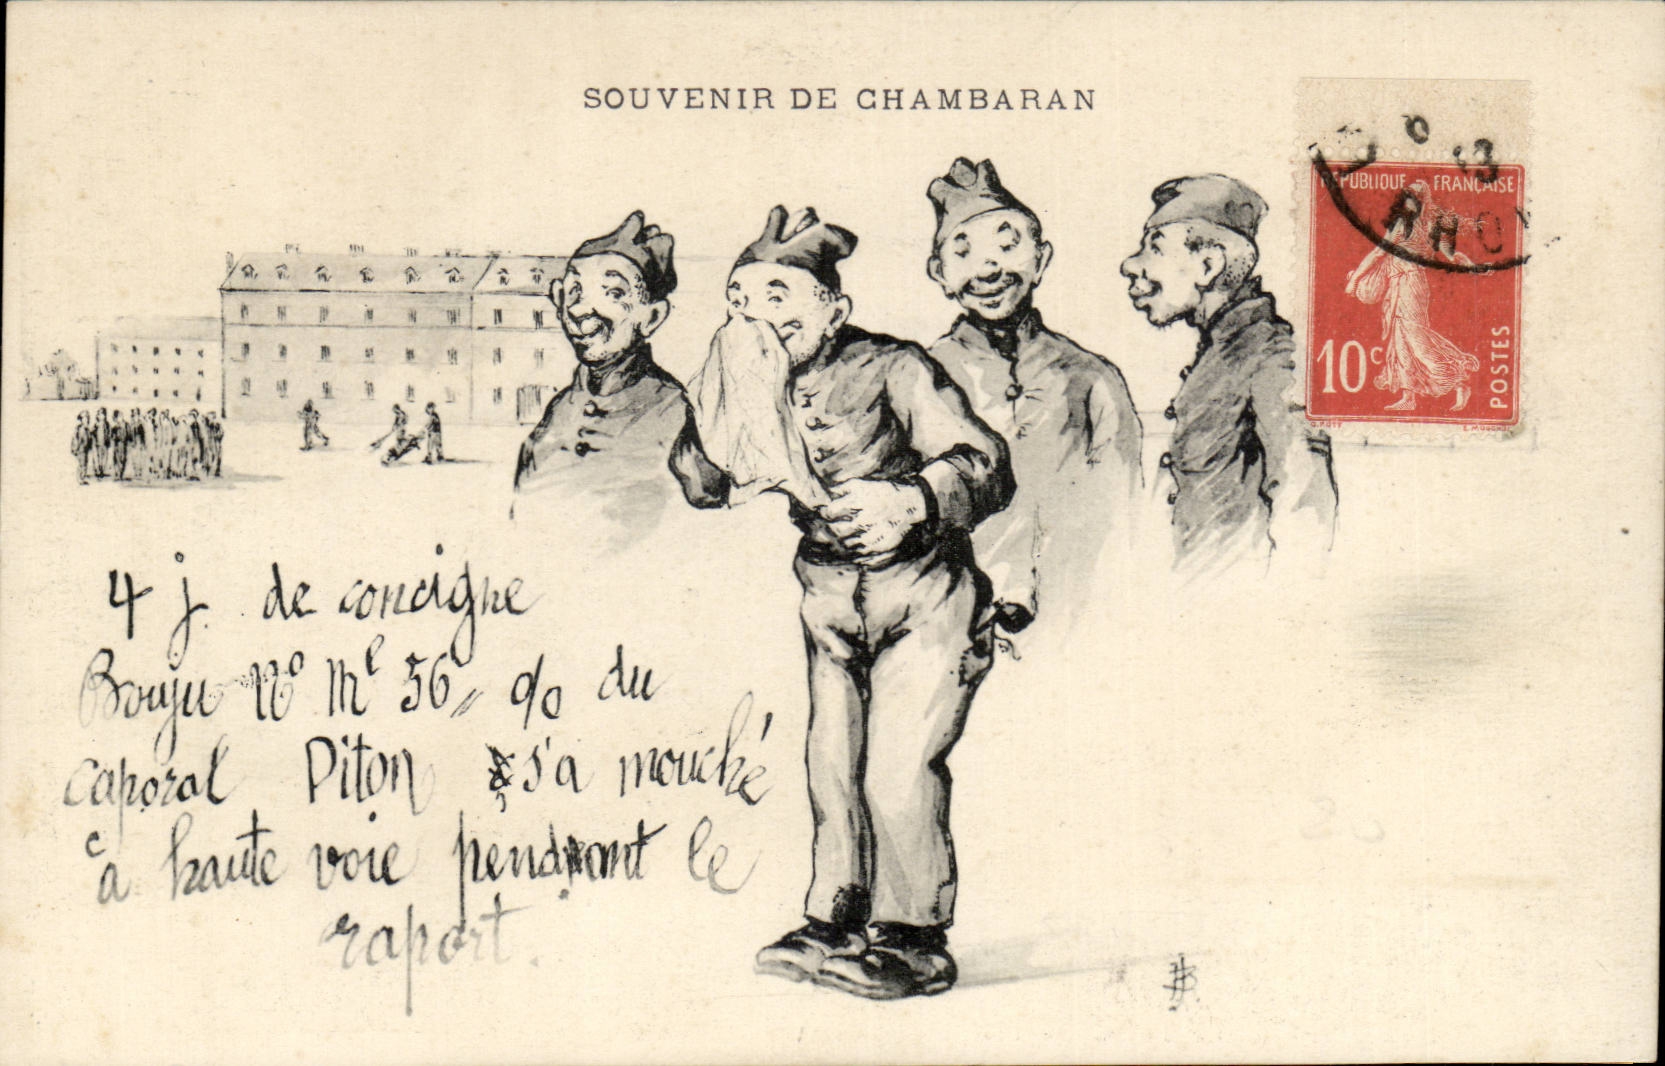 SOUVENIR DE CHAMBARAN
REPUBLIQUE FRANÇAISE
10c
POSTES
RHO
13
4 j. de concigne
Bouju No Ml 56 % du
caporal Piton s'a mouché
à haute voie pendant le
raport.